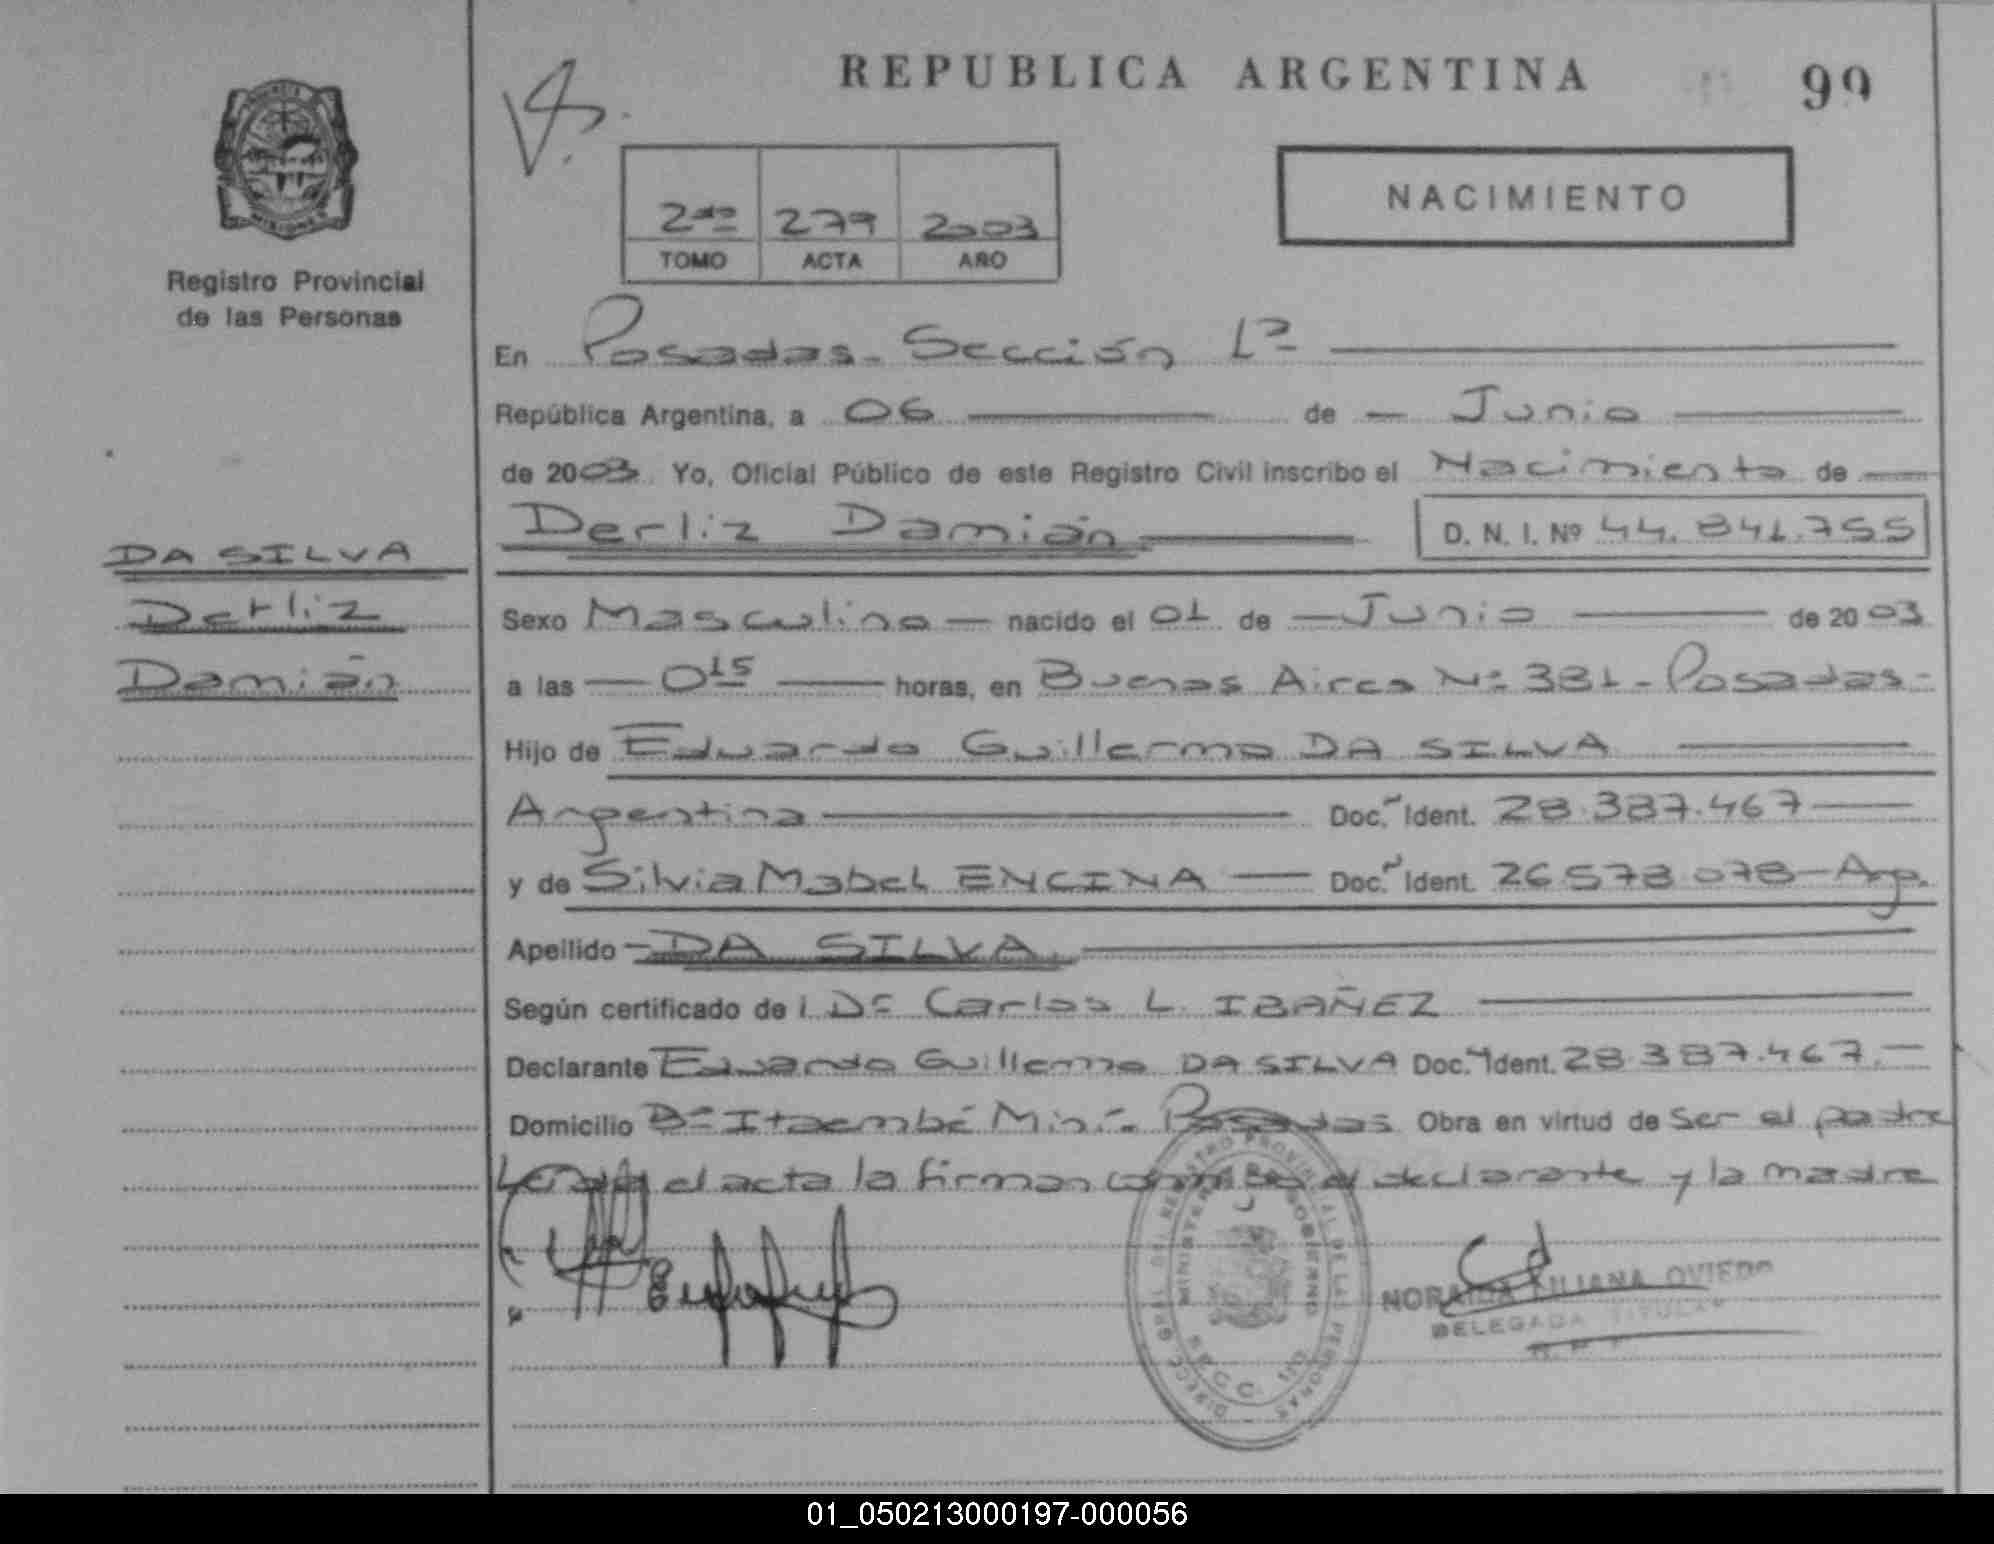 REPUBLICA ARGENTINA
99
NACIMIENTO
2do 279 2003
TOMO ACTA AÑO
Registro Provincial
de las Personas
En Posadas - Sección 1ª
República Argentina, a 06 de Junio
de 2003 Yo, Oficial Público de este Registro Civil inscribo el Nacimiento de
Derliz Damián
D. N. I. Nº 44.841.755
DA SILVA
Derliz
Damián
Sexo Masculino nacido el 01 de Junio de 2003
a las 0 15 horas, en Buenos Aires Nº 381 - Posadas -
Hijo de Eduardo Guillermo DA SILVA
Argentina Doc. Ident. 28.387.467
y de Silvia Mabel ENCINA Doc. Ident. 26.578.078 - Arg.
Apellido DA SILVA
Según certificado de Dr Carlos L. IBAÑEZ
Declarante Eduardo Guillermo DA SILVA Doc. Ident. 28.387.467.-
Domicilio Bº Itaembé Miní - Posadas Obra en virtud de ser el padre
Leída el acta la firman conmigo el declarante y la madre
DIRECC. GRAL. DEL REGISTRO PROVINCIAL DE LAS PERSONAS
MINISTERIO DE GOBIERNO
NORAIDA LILIANA OVIEDO
DELEGADA TITULAR
01_050213000197-000056